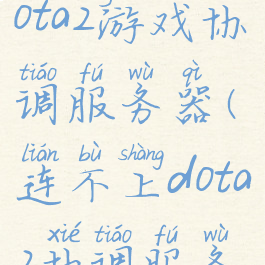 ota2游戏协
tiáo fú wù qì
调服务器(
lián bù shàng
连不上dota
xié tiáo fú wù
2协调服务